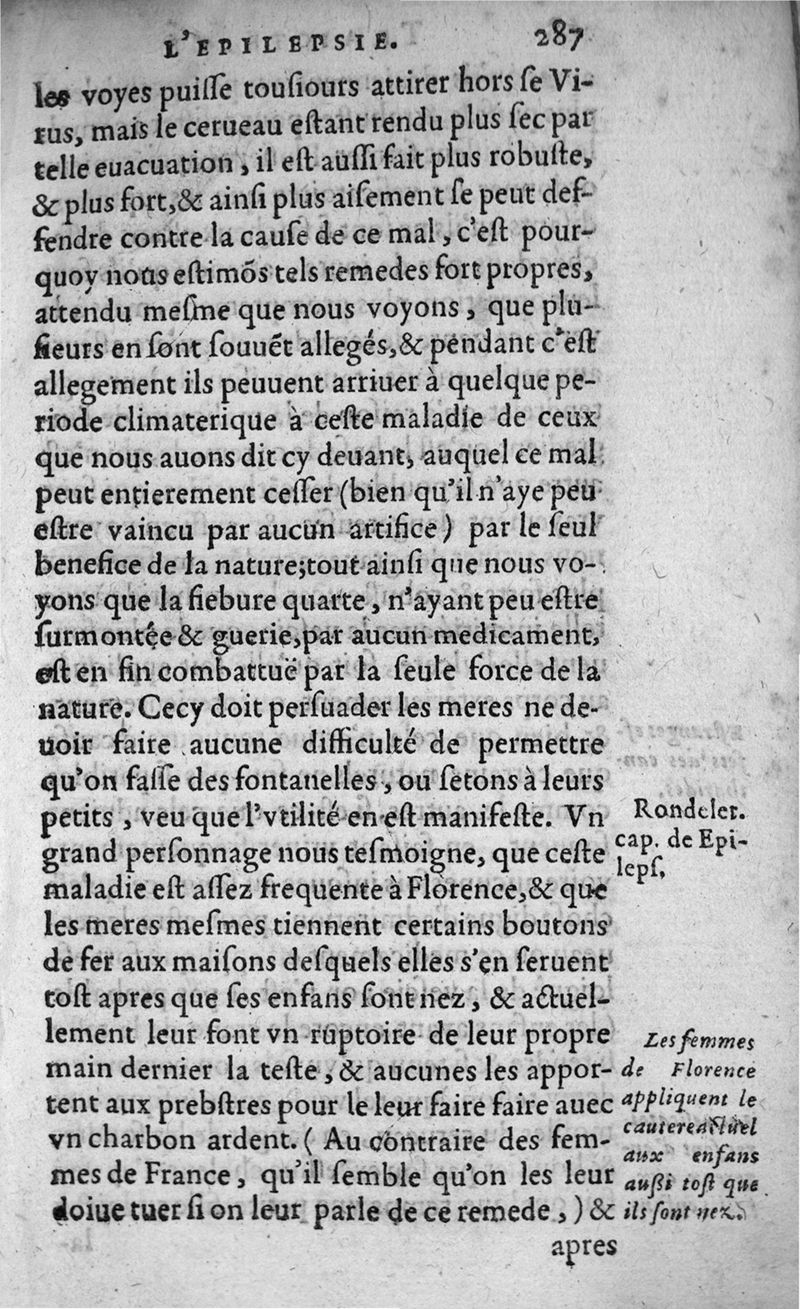 L'EPILEPSIE. 287
les voyes puiſſe touſiours attirer hors ſe Vi-
rus, mais le cerueau eſtant rendu plus ſec par
telle euacuation, il eſt auſſi fait plus robuſte,
& plus fort, & ainſi plus aiſement ſe peut def-
fendre contre la cauſe de ce mal, c'eſt pour-
quoy nous eſtimõs tels remedes fort propres,
attendu meſme que nous voyons, que plu-
ſieurs en ſont ſouuẽt allegés, & pendant c'eſt
allegement ils peuuent arriuer à quelque pe-
riode climaterique à ceſte maladie de ceux
que nous auons dit cy deuant, auquel ce mal
peut entierement ceſſer (bien qu'il n'aye peu
eſtre vaincu par aucun artifice) par le ſeul
benefice de la nature; tout ainſi que nous vo-
yons que la fiebure quarte, n'ayant peu eſtre
ſurmontée & guerie, par aucun medicament,
eſt en fin combattuë par la ſeule force de la
nature. Cecy doit perſuader les meres ne de-
uoir faire aucune difficulté de permettre
qu'on faſſe des fontanelles, ou ſetons à leurs
petits, veu que l'vtilité en eſt manifeſte. Vn
grand perſonnage nous teſmoigne, que ceſte
maladie eſt aſſez frequente à Florence, & que
les meres meſmes tiennent certains boutons
de fer aux maiſons deſquels elles s'en ſeruent
toſt apres que ſes enfans ſont nez, & actuel-
lement leur font vn ruptoire de leur propre
main dernier la teſte, & aucunes les appor-
tent aux prebſtres pour le leur faire faire auec
vn charbon ardent. (Au contraire des fem-
mes de France, qu'il ſemble qu'on les leur
doiue tuer ſi on leur parle de ce remede,) &
apres
Rondelet.
cap. de Epi-
lepſ.
Les femmes
de Florence
appliquent le
cautere actuel
aux enfans
auſſi toſt que
ils ſont nez.